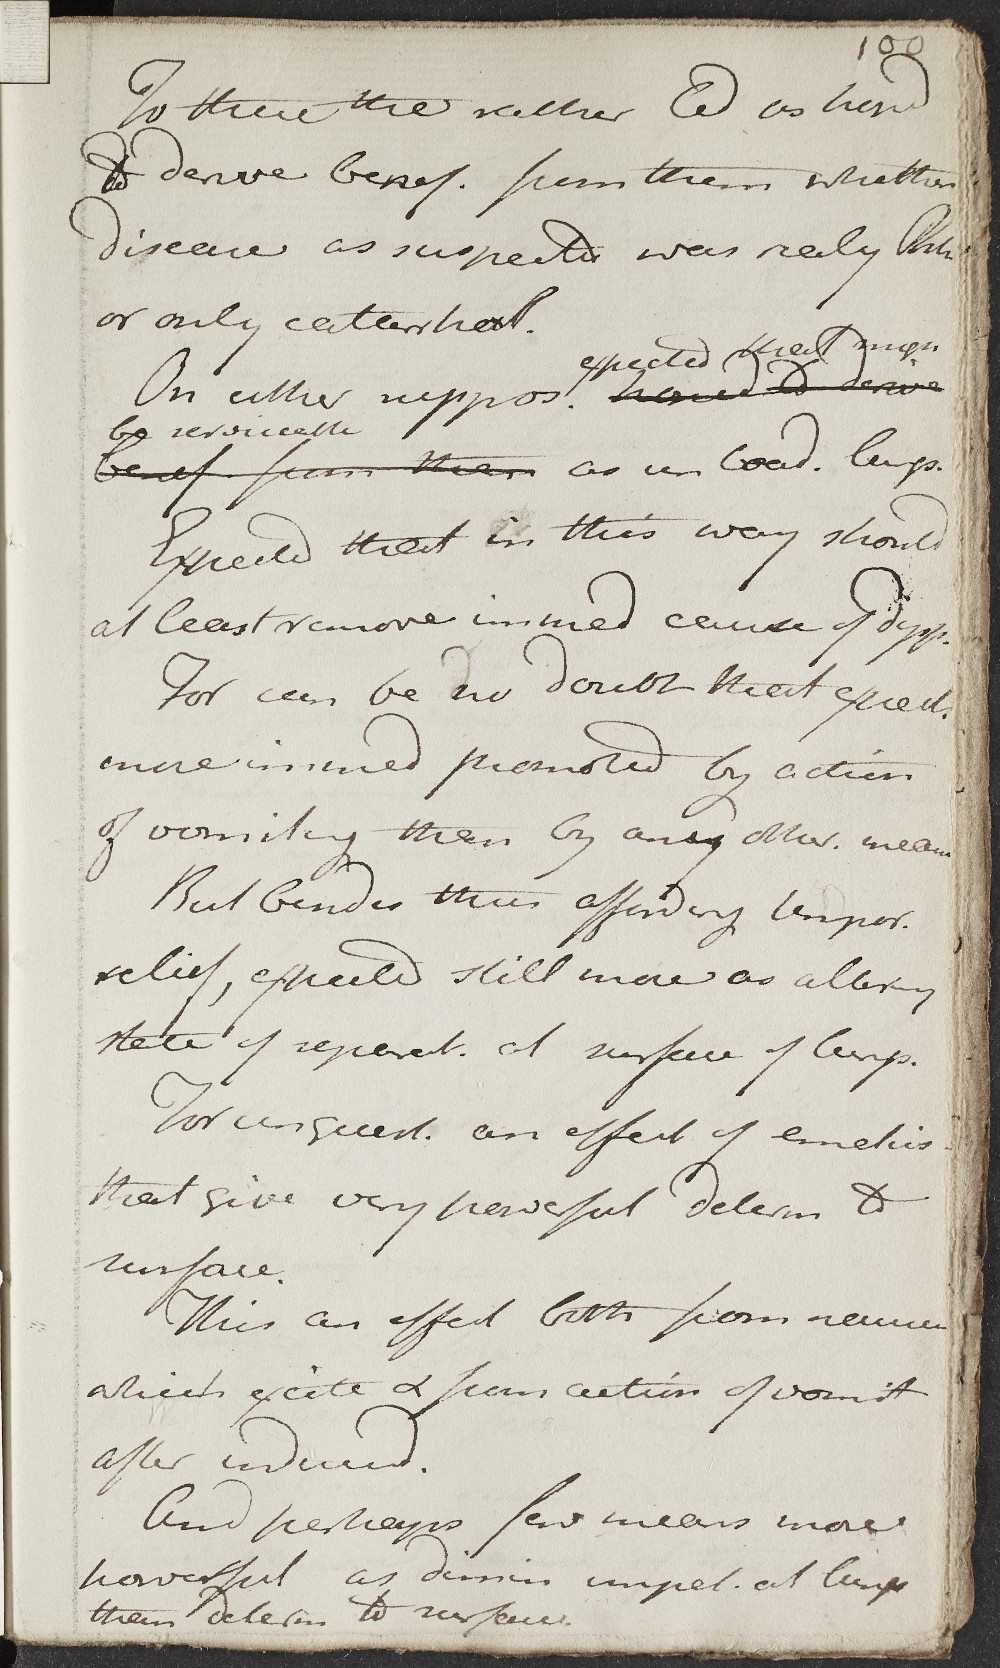 100
To these the rather Led as hoped
to derive benef. from them whether
disease as suspected was realy Phth
or only catarrhal.
On either suppos. expected that migh
hoped to derive
be serviceable
benef from them as un load. lungs.
Expected that in this way should
at least remove immed cause of dysp.
For can be no doubt that expect.
more immed promoted by action
of vomiting than by any other. mean
But besides thus affording tempor.
relief, expected still more as altering
state of separat. at surface of lungs.
For unquest. an effect of emetics
that give very powerful determ to
surface.
This an effect both from nausea
which excite & from action of vomit
after induced.
And perhaps few means more
powerful as dimin impet. at lungs
than determ to surface.